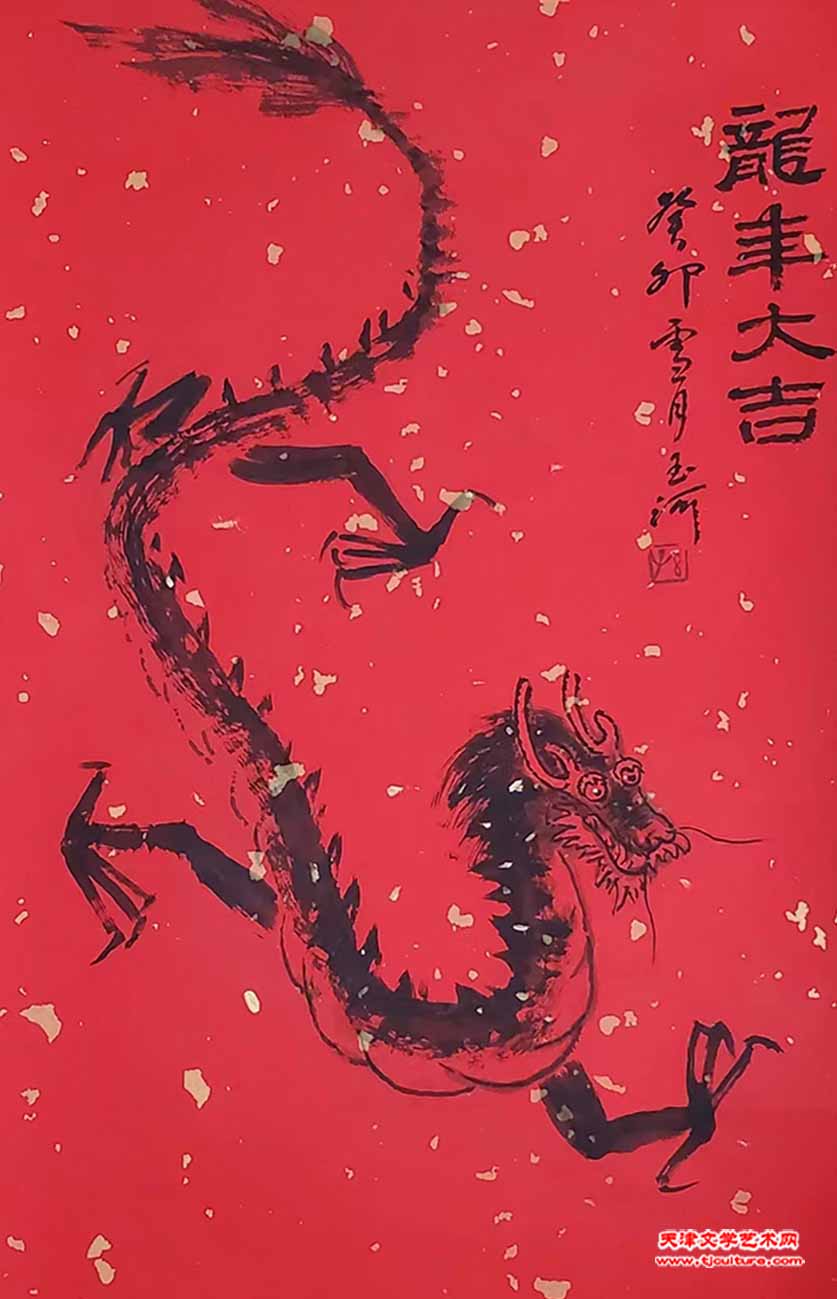 龍年大吉
癸卯雪月玉河
天津文学艺术网
www.tjculture.com